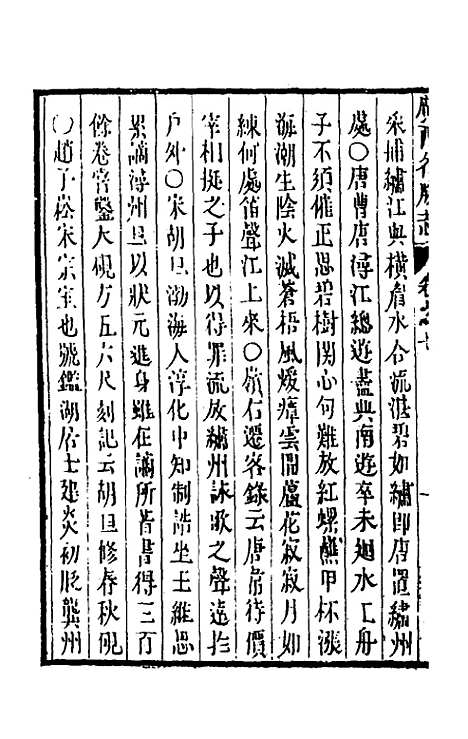 廣西名勝志
采捕繡江與橫眉水合流湛碧如繡卽唐置繡州
處〇唐曹唐潯江總遊盡與南遊卒未廻水工舟
子不須催正思碧樹關心何難放紅螺蘸甲杯漲
海潮生陰火滅蒼梧風煖瘴雲開蘆花寂寂月如
練何處笛聲江上來〇嶺右遷客錄云唐韋待價
宰相挺之子也以得罪流放繡州詠歌之聲遠於
戶外〇宋胡旦渤海人淳化中知制誥坐王繼恩
累謫潯州旦以狀元進身雖在謫所昔書得三百
餘卷嘗鑿大硯方五六尺刻記云胡旦修春秋硯
〇趙子崧宋宗室也號鑑湖居士建炎初貶龔州